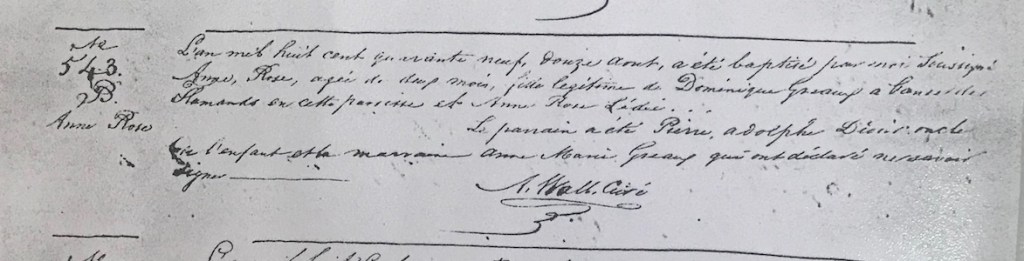 No
543.
B.
Anne Rose
L'an mil huit cent quarante neuf, douze aout, a été baptisé par moi Soussigné
Anne, Rose, agée de deux mois, fille legitime de Dominique Greaux a l'anse des
flamands en cette paroisse et Anne Rose Lédée . . .
Le parrain a été Pierre, adolphe oncle
de l'enfant et la marraine anne Marie Greaux qui ont déclaré ne savoir
signer
A. Wall. Curé